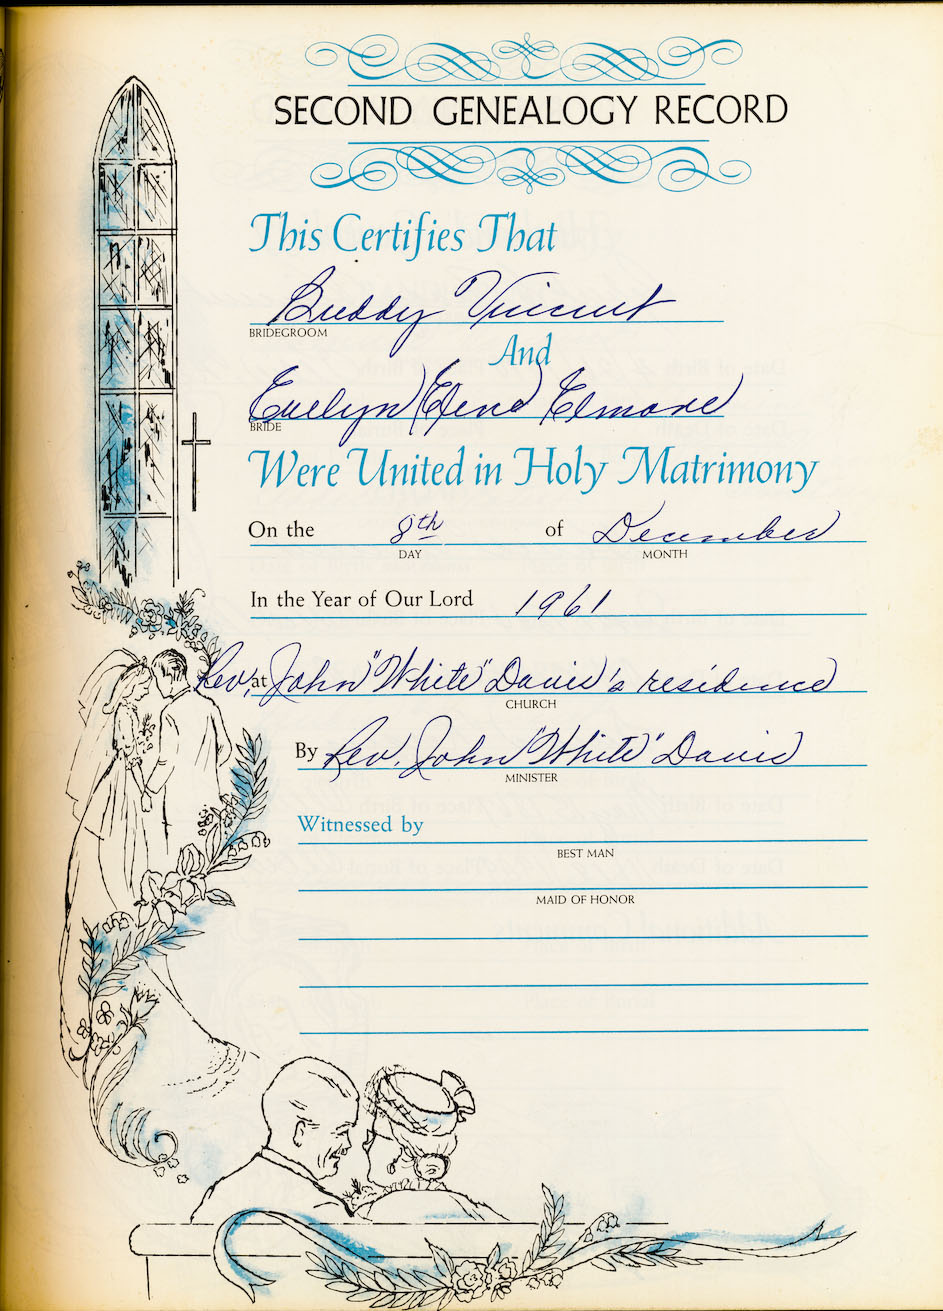 SECOND GENEALOGY RECORD
This Certifies That
Buddy Vincent
BRIDEGROOM
And
Evelyn (Gene) Elmore
BRIDE
Were United in Holy Matrimony
On the 8th of December
DAY MONTH
In the Year of Our Lord 1961
at Rev. John "White" Davis's residence
CHURCH
By Rev. John "White" Davis
MINISTER
Witnessed by
BEST MAN
MAID OF HONOR